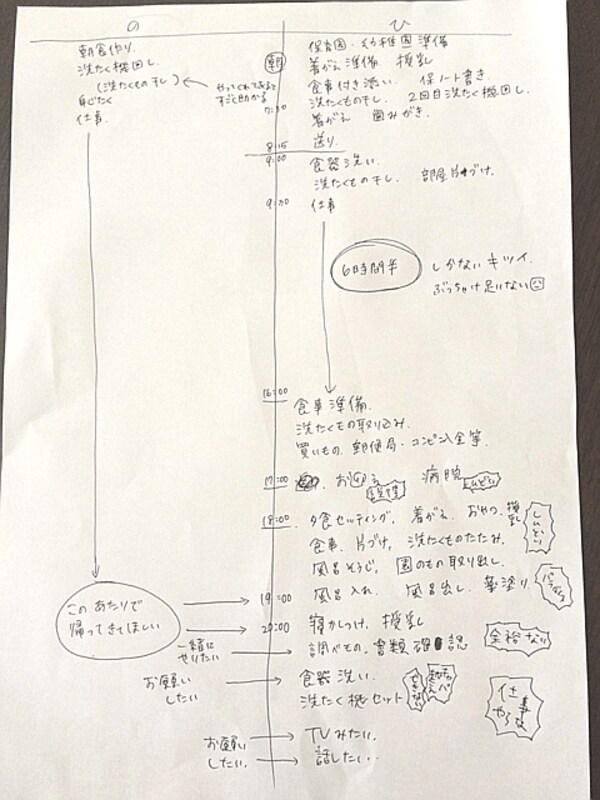 の
朝食作り.
洗たく機回し.
(洗たくもの干し)
身じたく
仕事.
やってくれてあると
すごく助かる
このあたりで
帰ってきてほしい
一緒に
やりたい
お願い
したい
お願い
したい.
ひ
朝
保育園・幼稚園準備
着がえ準備 授乳
食事付き添い. 保ノート書き.
洗たくもの干し. 2回目洗たく機回し.
7:30
着がえ 歯みがき.
送り.
8:15
9:00
食器洗い.
洗たくもの干し. 部屋片づけ.
9:30 仕事
6時間半
しかない キツイ.
ぶっちゃけ足りない
16:00
食事準備.
洗たくもの取り込み.
買いもの. 郵便局・コンビニ入金等
17:00
病院
18:00 夕食セッティング, 着がえ. おやつ. 授乳
しんどい
食事. 片づけ. 洗たくものたたみ.
風呂そうじ, 園のもの取り出し.
19:00 風呂入れ. 風呂出し. 薬塗り.
20:00 寝かしつけ. 授乳
調べもの. 書類確認
余裕ない
食器洗い.
洗たく機セット
仕事
やらな
TVみたい.
話したい..